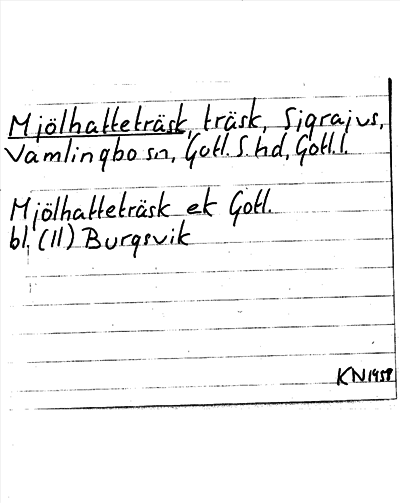 Mjölhatteträsk, träsk, Sigrajvs,
Vamlingbo sn, Gotl. S. hd, Gotl. l.
Mjölhatteträsk ek Gotl.
bl. (11) Burgsvik
KN 1958